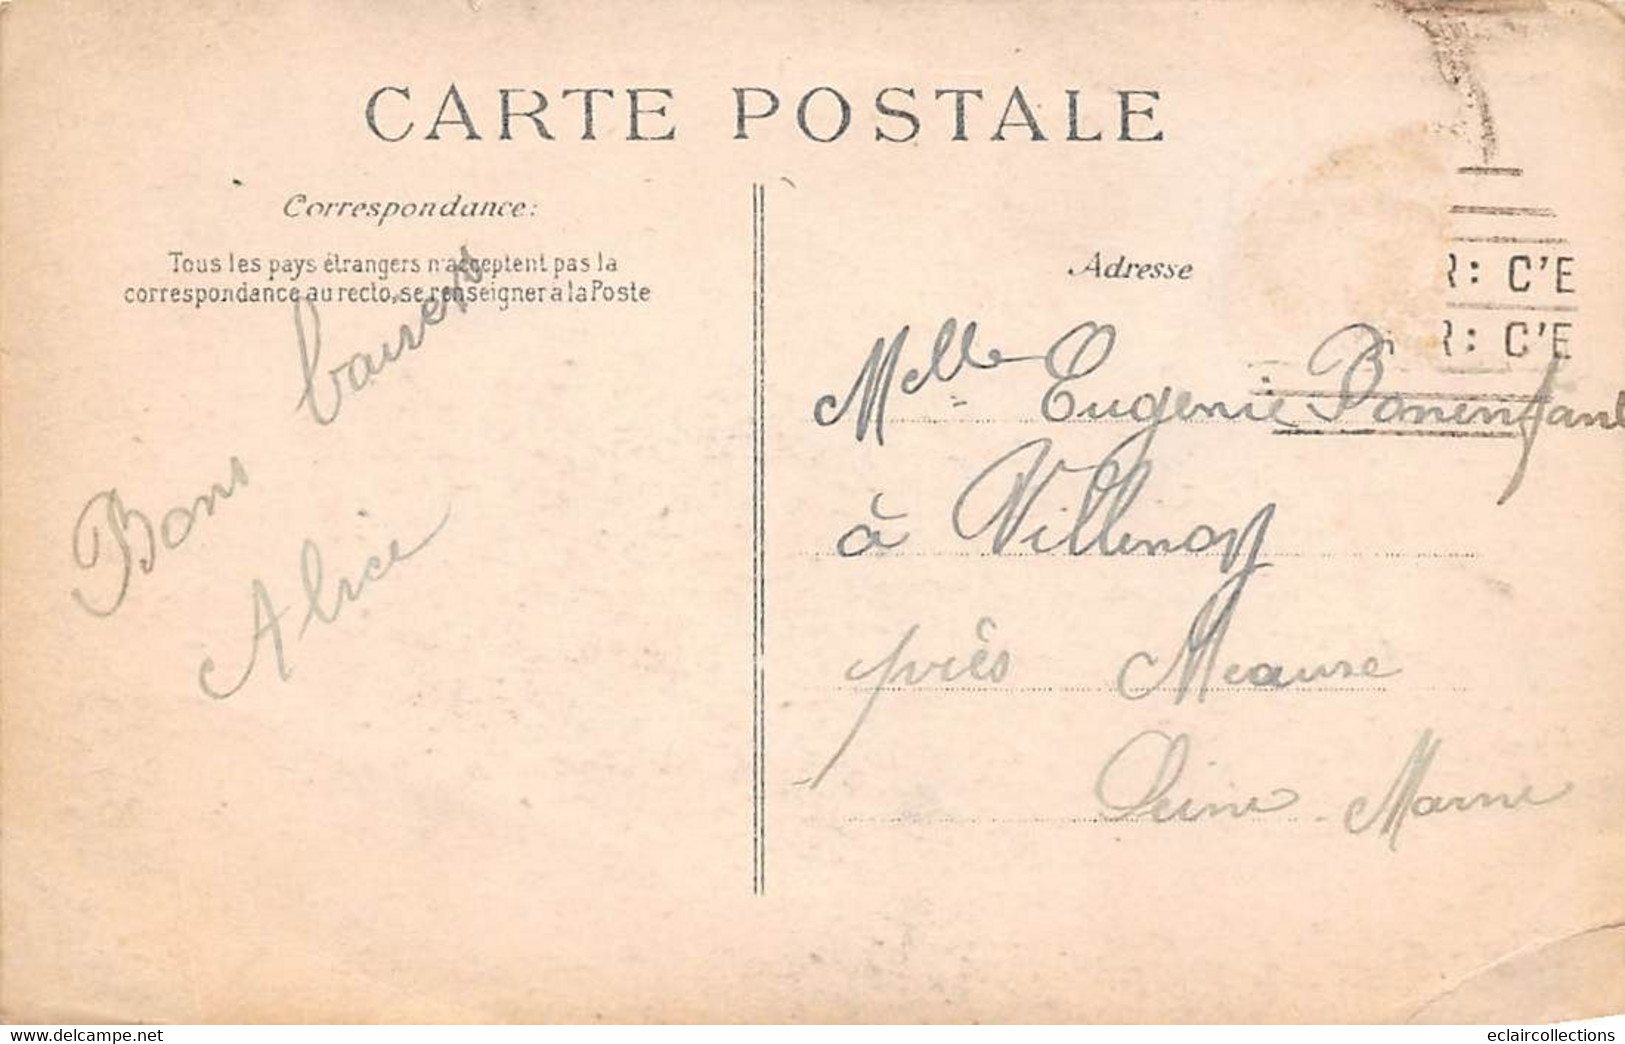 CARTE POSTALE
Correspondance:
Tous les pays étrangers n'acceptent pas la
correspondance au recto, se renseigner à la Poste
Bons baisers
Alice
Adresse
R: C'E
R: C'E
Melle Eugenie Bonenfant
à Villenoy
près Meause
Seine Marne
www.delcampe.net
eclaircollections